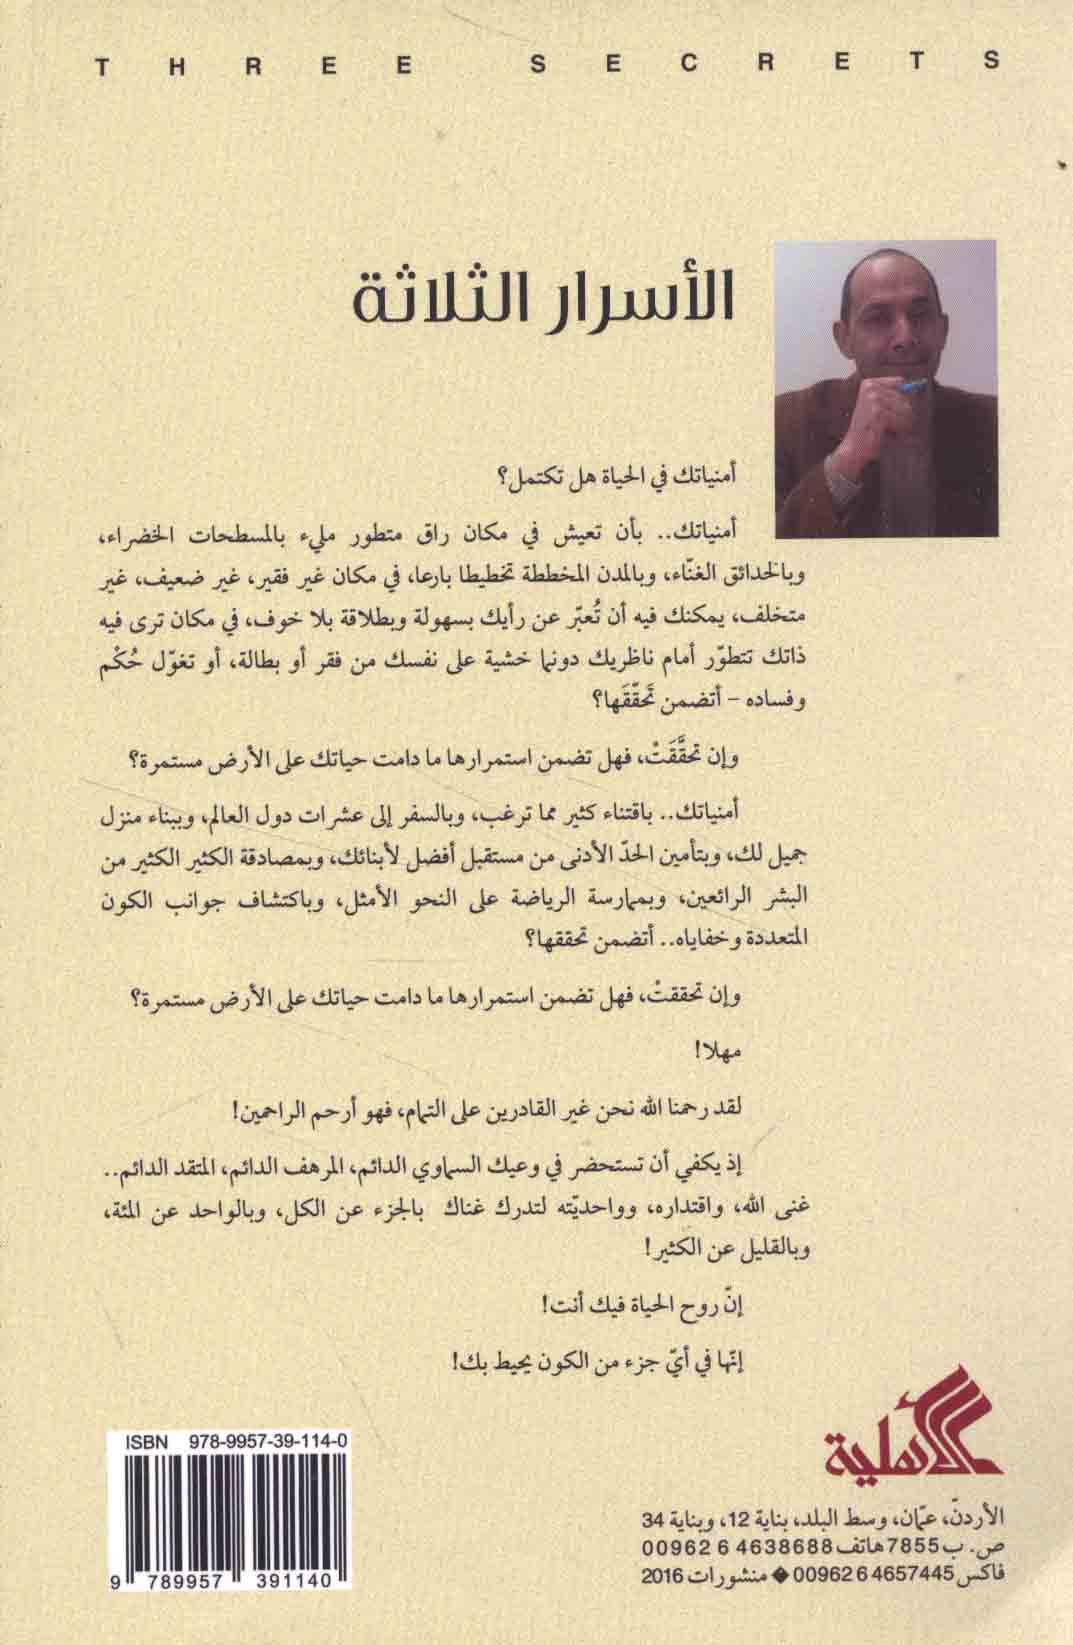 THREE SECRETS
الأسرار الثلاثة
أمنياتك في الحياة هل تكتمل؟
أمنياتك.. بأن تعيش في مكان راق متطور مليء بالمسطحات الخضراء،
وبالحدائق الغنّاء، وبالمدن المخططة تخطيطا بارعا، في مكان غير فقير، غير ضعيف، غير
متخلف، يمكنك فيه أن تُعبّر عن رأيك بسهولة وبطلاقة بلا خوف، في مكان ترى فيه
ذاتك تتطوّر أمام ناظريك دونما خشية على نفسك من فقر أو بطالة، أو تغوّل حُكْم
وفساده – أتضمن تَحَقّقَها؟
وإن تحقَّقَتْ، فهل تضمن استمرارها ما دامت حياتك على الأرض مستمرة؟
أمنياتك.. باقتناء كثير مما ترغب، وبالسفر إلى عشرات دول العالم، وببناء منزل
جميل لك، وبتأمين الحدّ الأدنى من مستقبل أفضل لأبنائك، وبمصادقة الكثير الكثير من
البشر الرائعين، وبممارسة الرياضة على النحو الأمثل، وباكتشاف جوانب الكون
المتعددة وخفاياه.. أتضمن تحققها؟
وإن تحققتْ، فهل تضمن استمرارها ما دامت حياتك على الأرض مستمرة؟
مهلا!
لقد رحمنا الله نحن غير القادرين على التمام، فهو أرحم الراحمين!
إذ يكفي أن تستحضر في وعيك السماوي الدائم، المرهف الدائم، المتقد الدائم..
غنى الله، واقتداره، وواحديّته لتدرك غناك بالجزء عن الكل، وبالواحد عن المئة،
وبالقليل عن الكثير!
إنّ روح الحياة فيك أنت!
إنّها في أيّ جزء من الكون يحيط بك!
الأهلية
الأردنّ، عمّان، وسط البلد، بناية 12، وبناية 34
ص. ب 7855 هاتف 00962 6 4638688
فاكس 00962 6 4657445 ◆ منشورات 2016
ISBN 978-9957-39-114-0
9 789957 391140